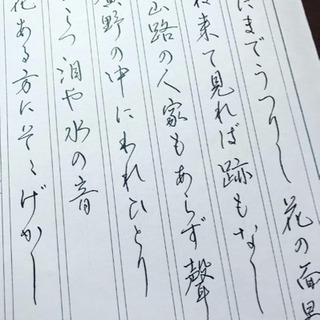 にまでうつりし 花の面
来て見れば跡もなし
山路の人家もあらず 聲
野の中にわれひとり
つ 泪や水の音
花ある方にそゝげかし